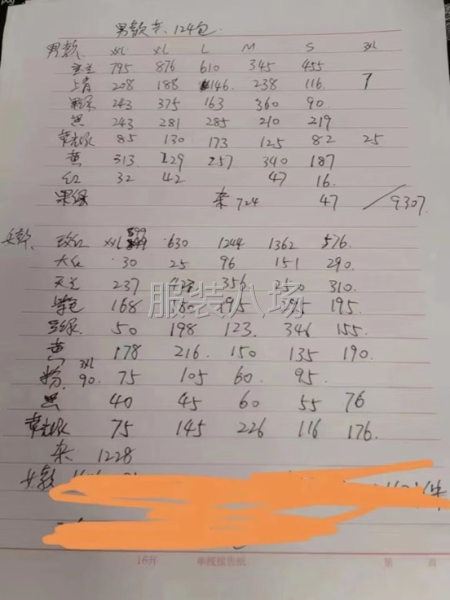 男款共124包
男款 XXL XL L M S 3XL
宝兰 795 876 610 345 455
上青 208 188 146 238 116 7
果绿 243 375 163 360 90
黑 243 281 285 210 219
荧光绿 85 130 173 125 82 25
黄 313 129 257 340 187
红 32 42 47 16
果绿 杂724 47 /9307
女款 玫红 XXL 599 630 1244 1362 576
大红 30 25 96 151 290
天兰 237 356 250 310
紫色 168 180 195 395 195
果绿 50 198 123 346 155
黄 178 216 150 135 190
粉 3XL 90 75 105 60 95
黑 40 45 60 55 76
荧光绿 75 145 226 116 176
杂 1228
女款 件
服装八场
16开 单线报告纸 第 页